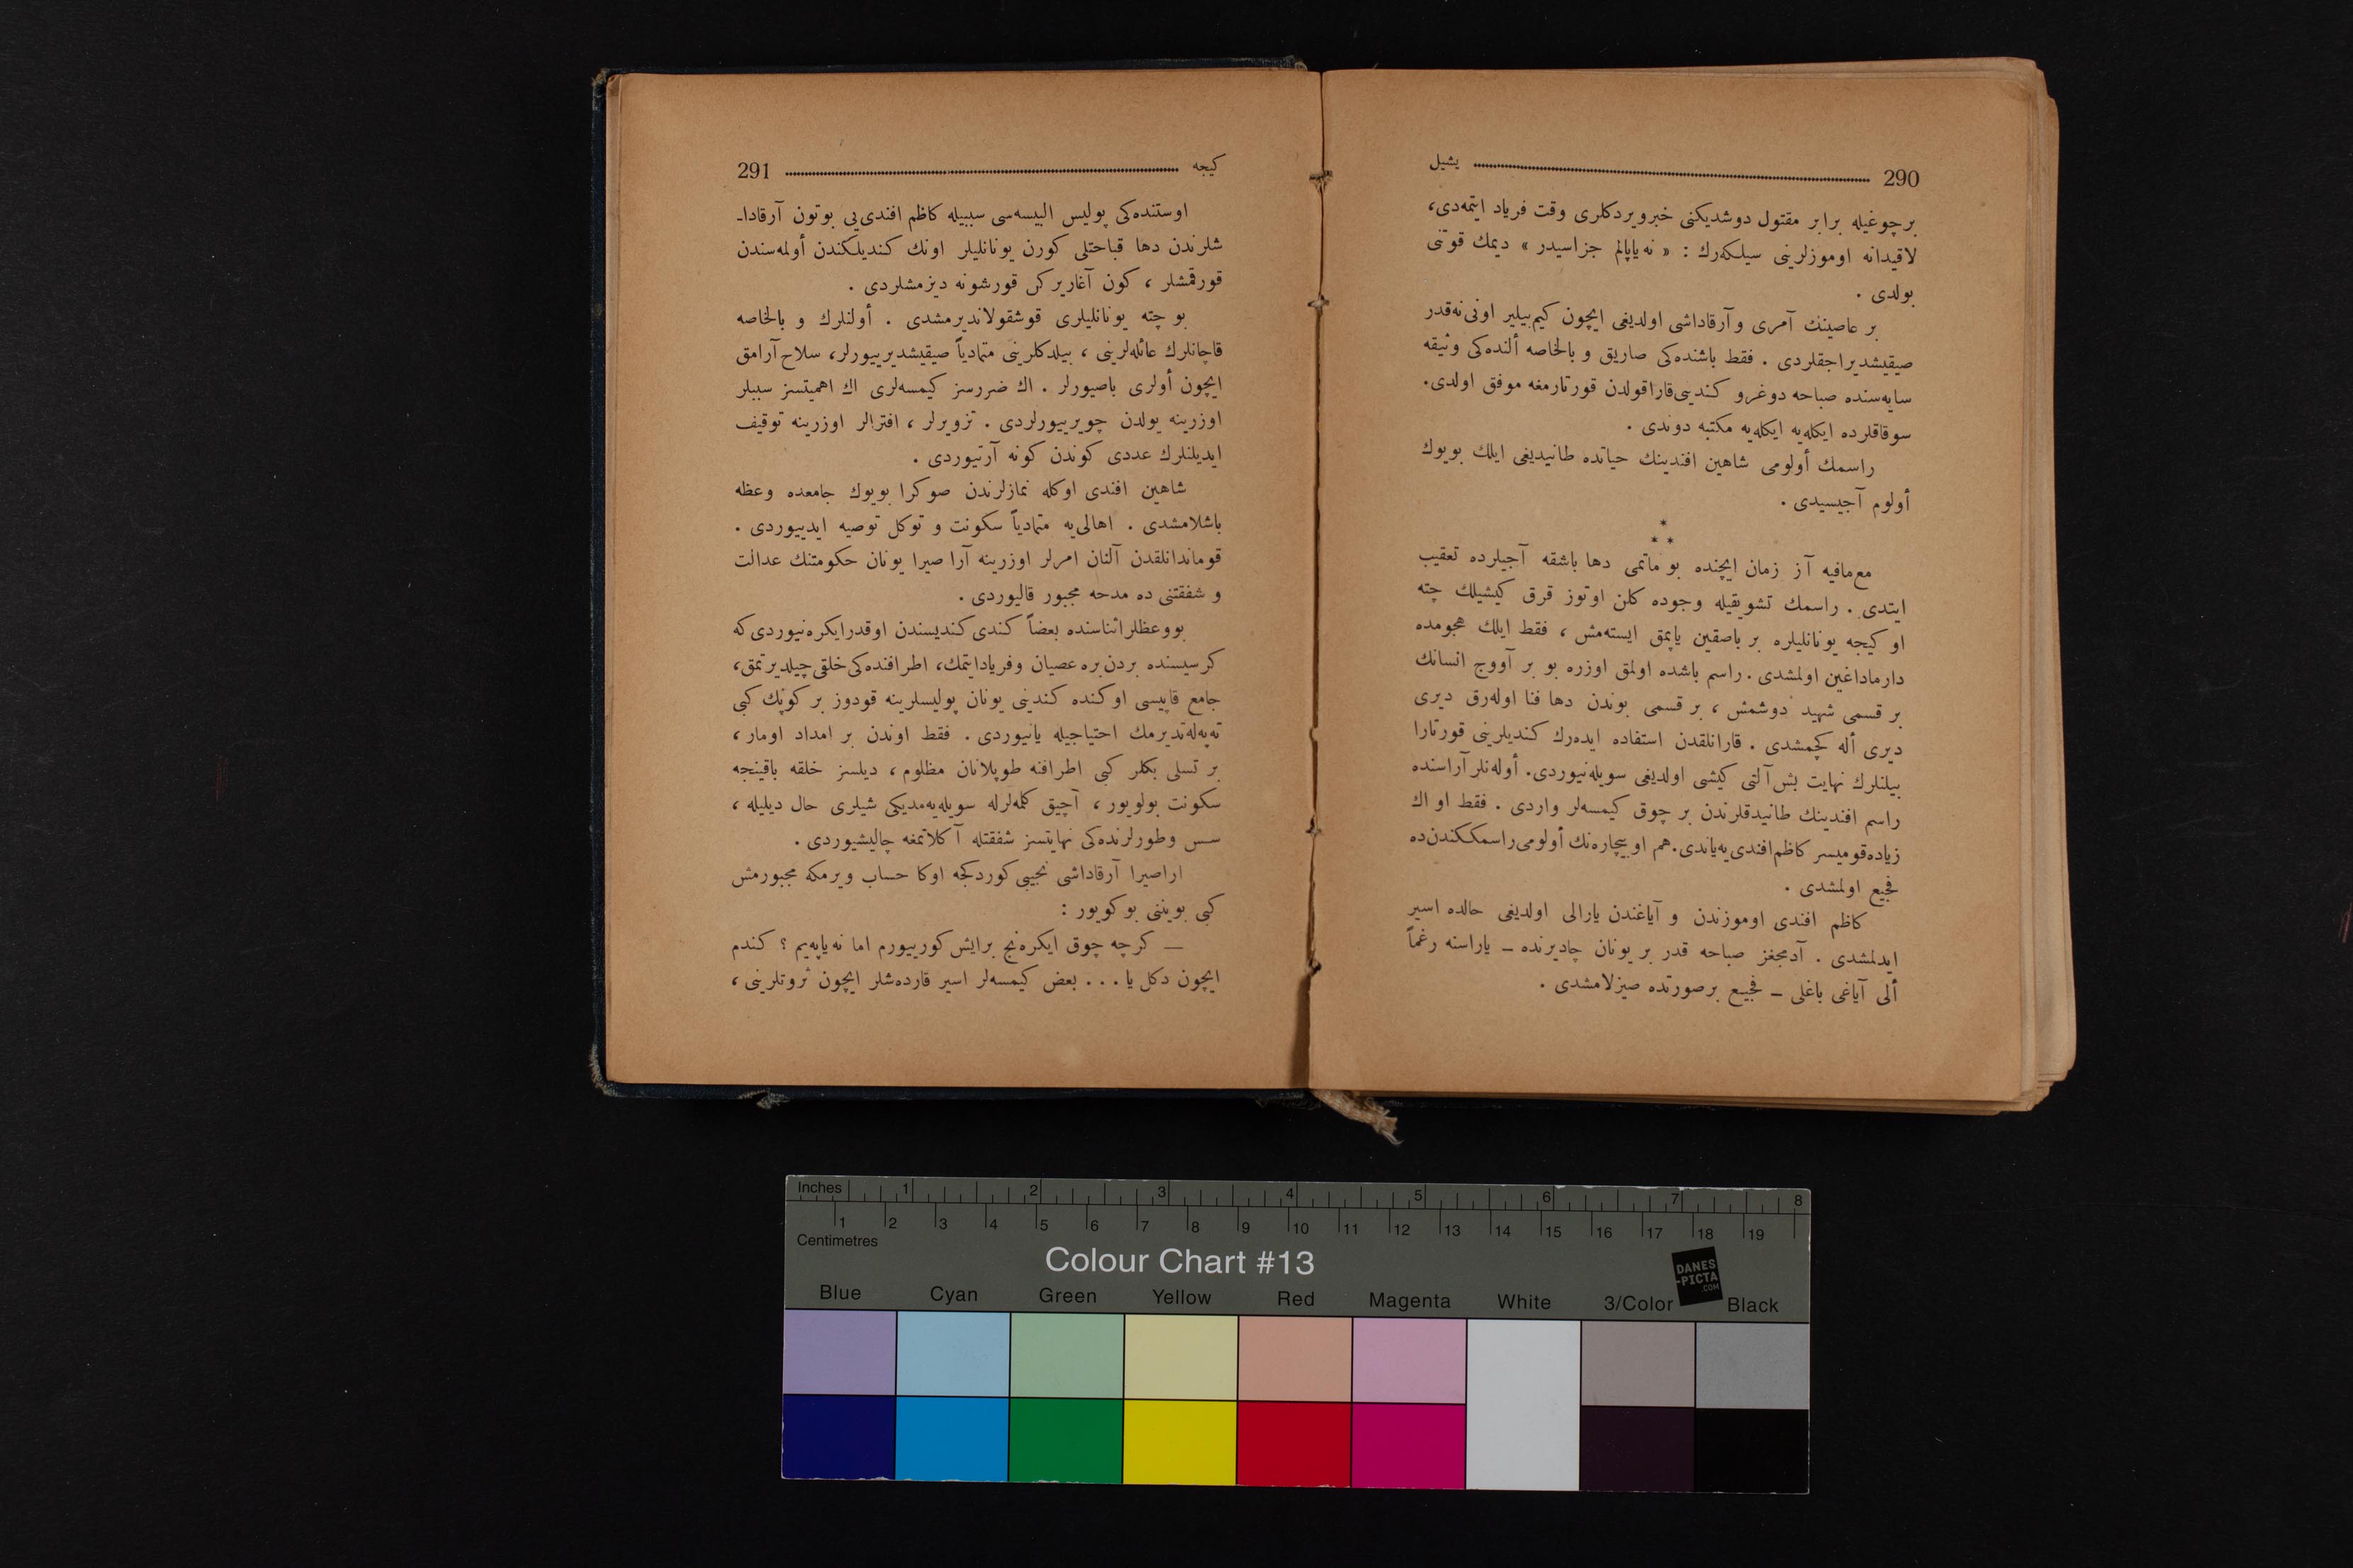 290 يشيل
برچوغيله برابر مقتول دوشديكنى خبرويردكلرى وقت فرياد ايتمه‌دى،
لاقيدانه اوموزلرينى سيلكه‌رك : « نه ياپالم جزاسيدر » ديمك قوتنى
بولدى .
بر عاصينك آمرى و آرقاداشى اولديغى ايچون كيم بيلير اونى نه‌قدر
صيقيشديراجقلردى . فقط باشنده‌كى صاريق و بالخاصه ألنده‌كى وثيقه
سايه‌سنده صباحه دوغرو كندينى قاراقولدن قورتارمغه موفق اولدى.
سوقاقلرده ايكله‌يه ايكله‌يه مكتبه دوندى .
راسمك أولومى شاهين افندينك حياتده طانيديغى ايلك بويوك
أولوم آجيسيدى .
*
* *
مع‌مافيه آز زمان ايچنده بو ماتمى دها باشقه آجيلرده تعقيب
ايتدى . راسمك تشويقيله وجوده كلن اوتوز قرق كيشيلك چته
او كيجه يونانليلره بر باصقين ياپمق ايسته‌مش ، فقط ايلك هجومده
دارماداغين اولمشدى . راسم باشده اولمق اوزره بو بر آووج انسانك
بر قسمى شهيد دوشمش ، بر قسمى بوندن دها فنا اوله‌رق ديرى
ديرى أله كچمشدى . قارانلقدن استفاده ايده‌رك كنديلرينى قورتارا
بيلنلرك نهايت بش آلتى كيشى اولديغى سويله‌نيوردى. أوله‌نلر آراسنده
راسم افندينك طانيدقلرندن بر چوق كيمسه‌لر واردى . فقط او اك
زياده قوميسر كاظم افندى‌يه ياندى. هم او بيچاره‌نك أولومى راسمككندن ده
فجيع اولمشدى .
كاظم افندى اوموزندن و آياغندن يارالى اولديغى حالده اسير
ايدلمشدى . آدمجغز صباحه قدر بر يونان چاديرنده ــ ياراسنه رغماً
ألى آياغى باغلى ــ فجيع برصورتده صيزلامشدى .
كيجه 291
اوستنده‌كى پوليس البيسه‌سى سببيله كاظم افندى‌يى بوتون آرقادا-
شلرندن دها قباحتلى كورن يونانليلر اونك كنديلكندن أولمه‌سندن
قورقمشلر ، كون آغاريركن قورشونه ديزمشلردى .
بو چته يونانليلرى قوشقولانديرمشدى . أولنلرك و بالخاصه
قاچانلرك عائله‌لرينى ، بيلدكلرينى متمادياً صيقيشديرييورلر، سلاح آرامق
ايچون أولرى باصيورلر . اك ضررسز كيمسه‌لرى اك اهميتسز سببلر
اوزرينه يولدن چويرييورلردى . تزويرلر ، افترالر اوزرينه توقيف
ايديلنلرك عددى كوندن كونه آرتيوردى .
شاهين افندى اوكله نمازلرندن صوكرا بويوك جامعده وعظه
باشلامشدى . اهالى‌يه متمادياً سكونت و توكل توصيه ايدييوردى .
قوماندانلقدن آلنان امرلر اوزرينه آرا صيرا يونان حكومتنك عدالت
و شفقتنى ده مدحه مجبور قاليوردى .
بووعظلر اثناسنده بعضاً كندى كنديسندن اوقدر ايكره‌نيوردى كه
كرسيسنده بردن بره عصيان وفرياد ايتمك، اطرافنده‌كى خلقى چيلديرتمق،
جامع قاپيسى اوكنده كندينى يونان پوليسلرينه قودوز بر كوپك كبى
تپه‌له‌تديرمك احتياجيله يانيوردى . فقط اوندن بر امداد اومار ،
بر تسلى بكلر كبى اطرافنه طوپلانان مظلوم ، ديلسز خلقه باقينجه
سكونت بولويور ، آچيق كله‌لرله سويله‌يه‌مديكى شيلرى حال ديليله ،
سس وطورلرنده‌كى نهايتسز شفقتله آكلاتمغه چاليشيوردى .
اراصيرا آرقاداشى نجيبى كوردكجه اوكا حساب ويرمكه مجبورمش
كبى بويننى بوكويور :
ــ كرچه چوق ايكره‌نج برايش كورييورم اما نه ياپه‌يم ؟ كندم
ايچون دكل يا . . . بعض كيمسه‌لر اسير قارده‌شلر ايچون ثروتلرينى ،
Inches 1 2 3 4 5 6 7 8
1 2 3 4 5 6 7 8 9 10 11 12 13 14 15 16 17 18 19
Centimetres
Colour Chart #13
DANES
-PICTA
.COM
Blue Cyan Green Yellow Red Magenta White 3/Color Black